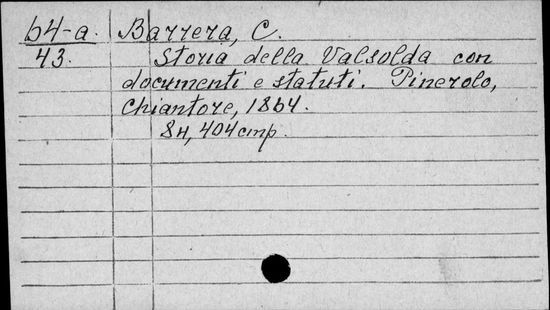 64-a. Barrera, C.
43. Storia della Valsolda con
documenti e statuti. Pinerolo,
Chiantore, 1864.
8н, 404 cmp.